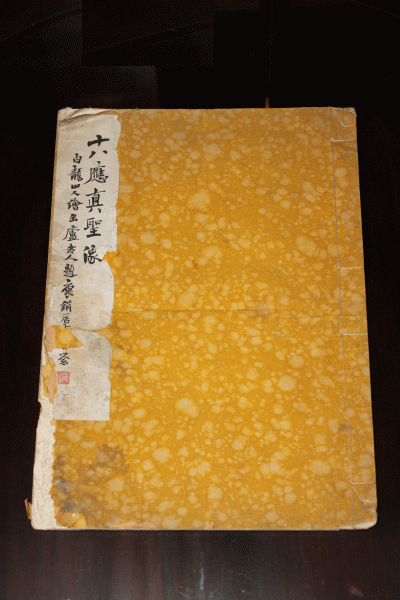 十八應真聖像
白龍山人繪缶廬老人題